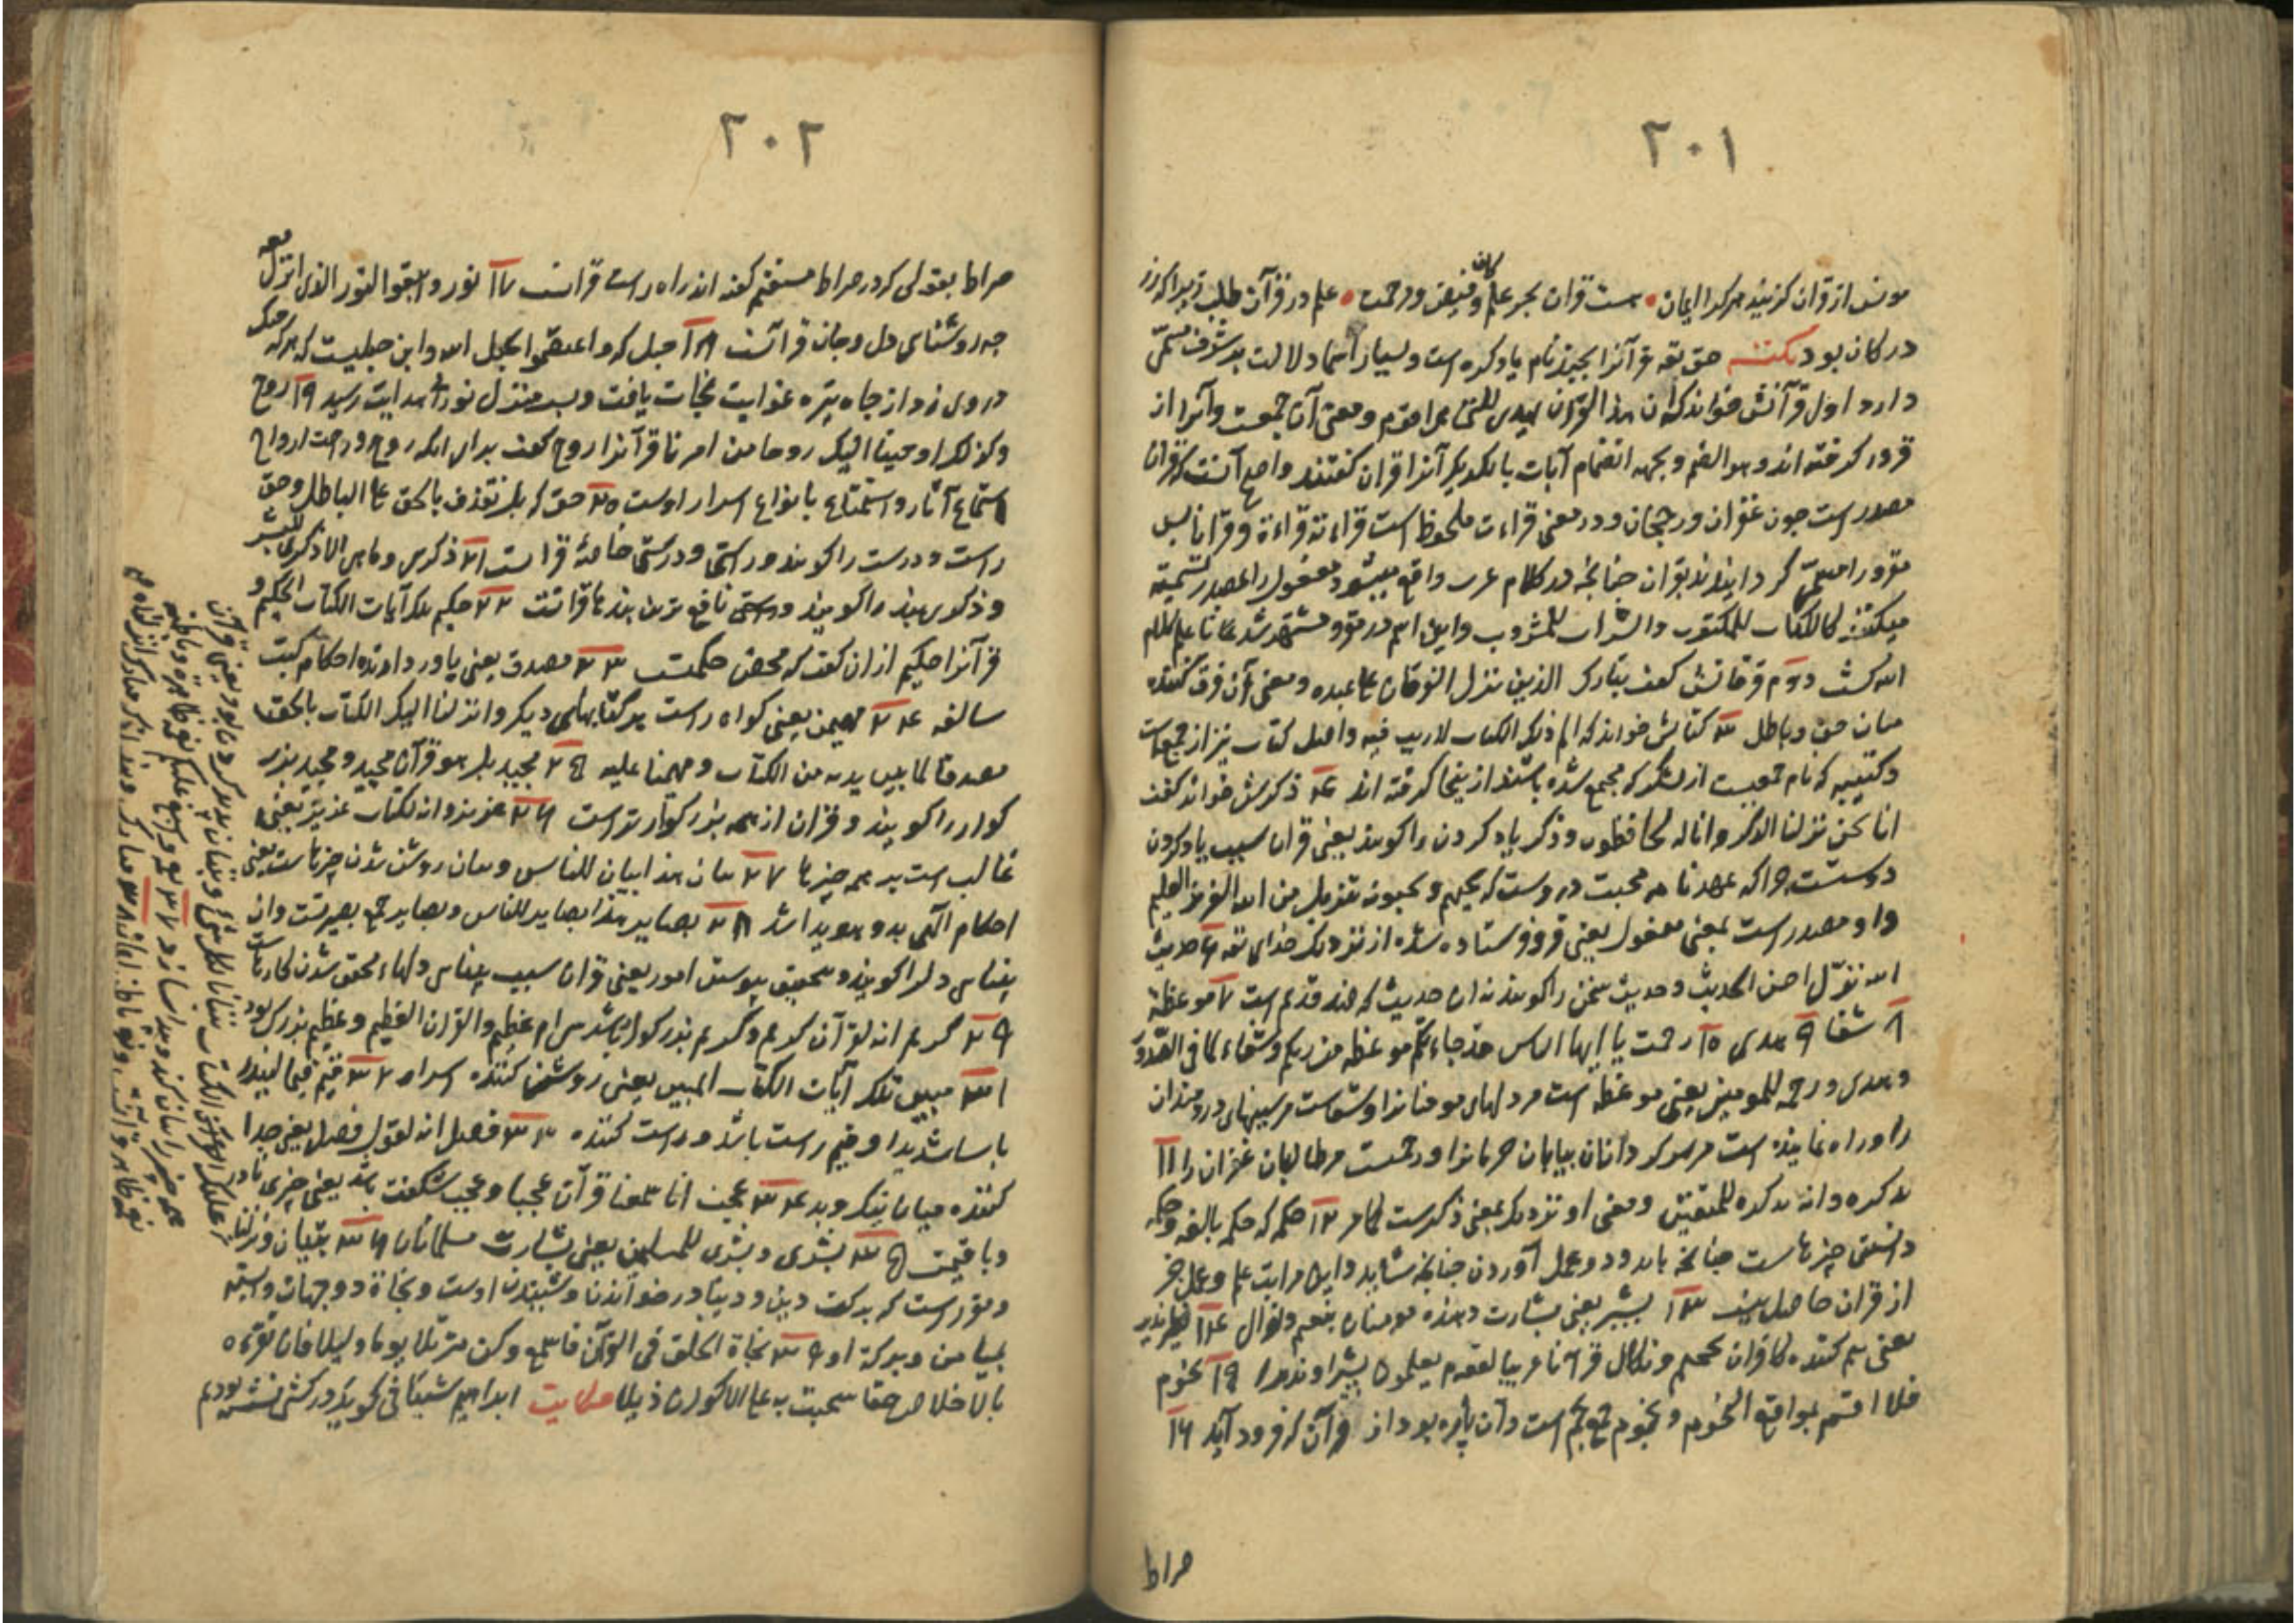 ٢٠١
مونس از قران گزیند هر کرا ایمان • هست قران بحر علم و کان فیض و رحمت • علم در قرآن طلب زیرا که زر
در کان بود نکته حق تعه قرآنرا بچند نام یاد کرده است و بسیار اسما دلالت بر شرف مسمّی
دارد اول قرآنش خواند که ان هذا القرآن یهدی للتی هی اقوم و معنی آن جمعست و آنرا از
قرء گرفته اند و هو الضم و بجهه انضمام آیات با یکدیگر آنرا قران گفتند و اصح آنست که قران
مصدر است چون غفران و رجحان و در معنی قراءت ملحوظ است قراءته قراءة و قرانا پس
مقرو را مسمّی گردانیدند بقران چنانچه در کلام عرب واقع میشود مفعول را بمصدر تسمیه
میکنند کالکتاب للمکتوب والشراب للمشروب و این اسم در مقرو مشتهر شد تا علم کلام
الله گشت دوم فرقانش گفت تبارک الذی نزل الفرقان علی عبده و معنی آن فرق کننده
میان حق و باطل ۳ کتابش خواند که الم ذلک الکتاب لاریب فیه و اصل کتاب نیز از جمع است
و کتیبه که نام جمعیست از لشکر که مجمع شده باشند از ینجا گرفته اند ۴ ذکرش خواند گفت
انا نحن نزلنا الذکر وانا له لحافظون و ذکر یاد کردن را گویند یعنی قران سبب یاد کردن
دوست است چرا که عهدنامه محبت دروست که یحبهم و یحبونه تنزیل من الله العزیز العلیم
و او مصدر است بمعنی مفعول یعنی فرو فرستاده شده از نزدیک خدای تعه ۶ حدیث
الله نزّل احسن الحدیث و حدیث سخن را گویند نه ان حدیث که ضد قدیم است ۷ موعظة
۸ شفا ۹ هدی ۱۰ رحمت یا ایها الناس قد جاءتکم موعظة من ربکم و شفاء لما فی الصّدور
و هدی و رحمة للمومنین یعنی موعظه است مر دلهای مومنانرا و شفاست مر سینهای دردمندان
را و راه نماینده است مر سرگردانان بیابان حرمانرا و رحمتست مر طالبان غفران را ۱۱
تذکره و انه لتذکره للمتقین و معنی او نزدیک بمعنی ذکرست کما مر ۱۲ حکمه که حکمه بالغه و حکمه
دانستن چیزهاست چنانچه باید و در عمل آوردن چنانچه شاید و این مراتب علم و عمل جز
از قران حاصل نیست ۱۳ بشیر یعنی بشارت دهنده مومنان بنعیم و نوال ۱۴ نذیر
یعنی بیم کننده کافران بجحیم و نکال قرآنا عربیا لقوم یعلمون بشیرا و نذیرا ۱۵ نجوم
فلا اقسم بمواقع النجوم و نجوم جمع نجم است و آن پاره بود از قرآن که فرود آید ۱۶
صراط
٢٠٢
صراط بقولی که در صراط مستقیم گفته اند راه راست قرانست ۱۷ نور و اتبعوا النور الذی انزل معه
چه روشنای دل و جان قرآنست ۱۸ حبل که واعتصموا بحبل الله و این حبلیست که هر که چنگ
در وی زد از چاه تیره غوایت نجات یافت و بسر منزل نور هدایت رسید ۱۹ روح
وکذلک اوحینا الیک روحا من امرنا قرآنرا روح گفت برای انکه روح و راحت ارواح
استماع آثار و استمتاع بانواع اسرار اوست ۲۰ حق که بل نقذف بالحق علی الباطل و حق
راست و درست را گویند و راستی و درستی خاصهٔ قرانست ۲۱ ذکری و ما هی الا ذکری للبشر
و ذکری پند را گویند و راستی نافع ترین پندها قرانست ۲۲ حکیم تلک آیات الکتاب الحکیم و
قرآنرا حکیم ازان گفت که محض حکمتست ۲۳ مصدق یعنی باور دارنده احکام کتب
سالفه ۲۴ مهیمن یعنی گواه راست بر کتابهای دیگر وانزلنا الیک الکتاب بالحق
مصدقا لما بین یدیه من الکتاب و مهیمنا علیه ۲۵ مجید بل هو قرآن مجید و مجید بزر
گوار را گویند و قران از همه بزرگوارتر است ۲۶ عزیز وانه لکتاب عزیز یعنی
غالب است بر همه چیزها ۲۷ بیان هذا بیان للناس و بیان روشن شدن چیزهاست یعنی
احکام الهی بدو هویدا شد ۲۸ بصایر هذا بصایر للناس و بصایر جمع بصیرتست و ان
بیناس دلرا گویند و بتحقیق پیوستن امور یعنی قران سبب بیناس دلها و محقق شدن کارهاست
۲۹ کریم انه لقرآن کریم و کریم بزرگوار باشد ۳۰ عظیم والقران العظیم و عظیم بزرک بود
۳۱ مبین تلک آیات الکتاب المبین یعنی روشن کننده اسرار ۳۲ قیم قیما لینذر
باسا شدیدا و قیم راست باشد و راست کننده ۳۳ فصل انه لقول فصل یعنی جدا
کننده میان نیک و بد ۳۴ عجب انا سمعنا قرآنا عجبا و عجب شگفت باشد یعنی چیزی نادر
و با قیمت ۳۵ بشری و بشری للمسلمین یعنی بشارت مسلمانان ۳۶ تبیان و نزلنا
و مقرر است که برکت دین و دنیا در خواندن و شنیدن اوست و نجاة دو جهان وابسته
بمیامن و برکة او ۳۹ نجاة الخلق فی القرآن فاسمع وکن متّلا یوما و لیلا فان تقرءه
بالاخلاص حقا سحبت به علی الاکوان ذیلا حکایت ابراهیم شیبانی گوید در کشتی نشسته بودیم
علیک الکتاب تبیانا لکل شیء و تبیان پدید کردن بود یعنی قرآن
همه چیز را بیان کند و پیدا سازد ۳۷
۳۸ مبارک و هذا ذکر مبارک انزلناه